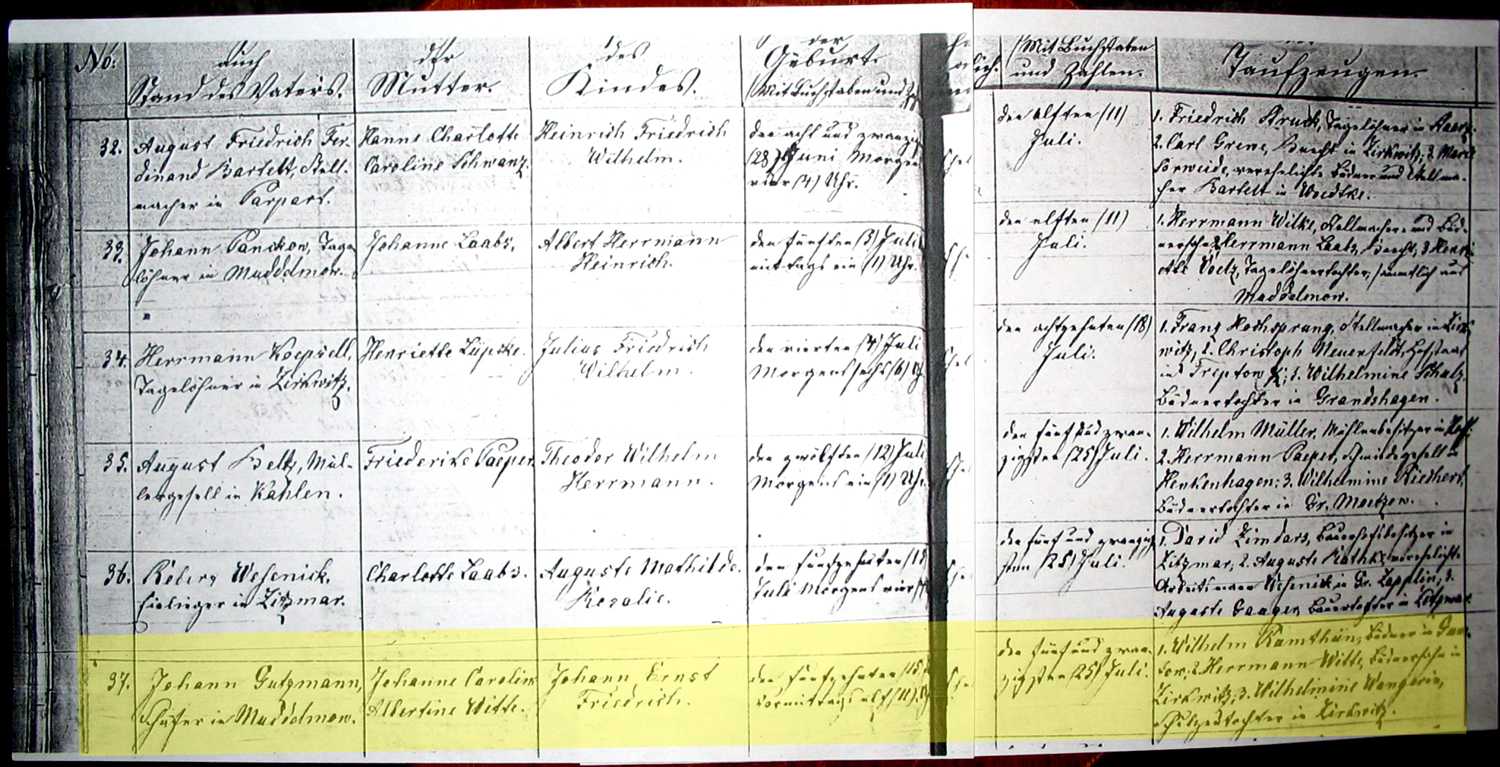 No.
auch
Stand des Vaters.
der
Mutter.
des
Kindes.
der
Geburt.
(Mit Buchstaben und
(Mit Buchstaben
und Zahlen.
Taufzeugen.
32.
August Friedrich Fer-
dinand Bartelt, Stell-
macher in Parpart.
Hanne Charlotte
Caroline Schwanz.
Heinrich Friedrich
Wilhelm.
den acht und zwanzig
(28) Juni Morgen
vier (4) Uhr.
den elften (11)
Juli.
1. Friedrich Kruck, Tagelöhner in
2. Carl Greve, Knecht in Zirkwitz; 3.
verehelichte Büdner und Stellma-
cher Bartelt in Woedtke.
33.
Johann Panckow, Tage-
löhner in Muddelmow.
Johanne Laabs.
Albert Herrmann
Heinrich.
den fünften (5) Juli
mittags ein (1) Uhr.
den elften (11)
Juli.
1. Herrmann Wilke, Stellmacher und Büd-
nersohn, Herrmann Laabs, Knecht, 3.
Voetz, Tagelöhnertochter, sämmtlich aus
Muddelmow.
34.
Herrmann Koepsell,
Tagelöhner in Zirkwitz.
Henriette Lüpcke.
Julius Friedrich
Wilhelm.
den vierten (4) Juli
Morgens sechs (6) Uh
den achtzehnten (18)
Juli.
1. Franz Hochsprung, Stellmacher in Zirk-
witz, 2. Christoph Neuenfeldt,
in Treptow 3. Wilhelmine Schulz,
Büdnertochter in Grandshagen.
35.
August Beltz, Mül-
lergesell in Kahlen.
Friederike Paeper.
Theodor Wilhelm
Herrmann.
den zwölften (12) Juli
Morgens ein (1) Uhr.
den fünf und zwan-
zigsten (25) Juli.
1. Wilhelm Müller, Mühlenbesitzer in
2. Herrmann Paeper, Schmiedegesell in
Henkenhagen; 3. Wilhelmine Riechert,
Büdnertochter in Gr. Moitzow.
36.
Wesenick,
Einlieger in Zitzmar.
Charlotte Laabs.
Auguste Mathilde
Rosalie.
den funfzehnten (15
Juli Morgens vier
den fünf und zwanzig-
sten (25) Juli.
1. David Zimdars, Bauerhofsbesitzer in
Zitzmar, 2. Auguste Rathke, verehelichte
Arbeitsmann Wesenick in Gr. Zapplin, 3.
Auguste Bauertochter in Zitzmar.
37.
Johann Gutzmann,
Schäfer in Muddelmow.
Johanne Caroline
Albertine Witte.
Johann Ernst
Friedrich.
den funfzehnten (15
Vormittags elf (11) U
den fünf und zwan-
zigsten (25) Juli.
1. Wilhelm Ramthun, Büdner in
2. Herrmann Witte, Büdnersohn in
Zirkwitz; 3. Wilhelmine Wangerin,
Schulzentochter in Zirkwitz.